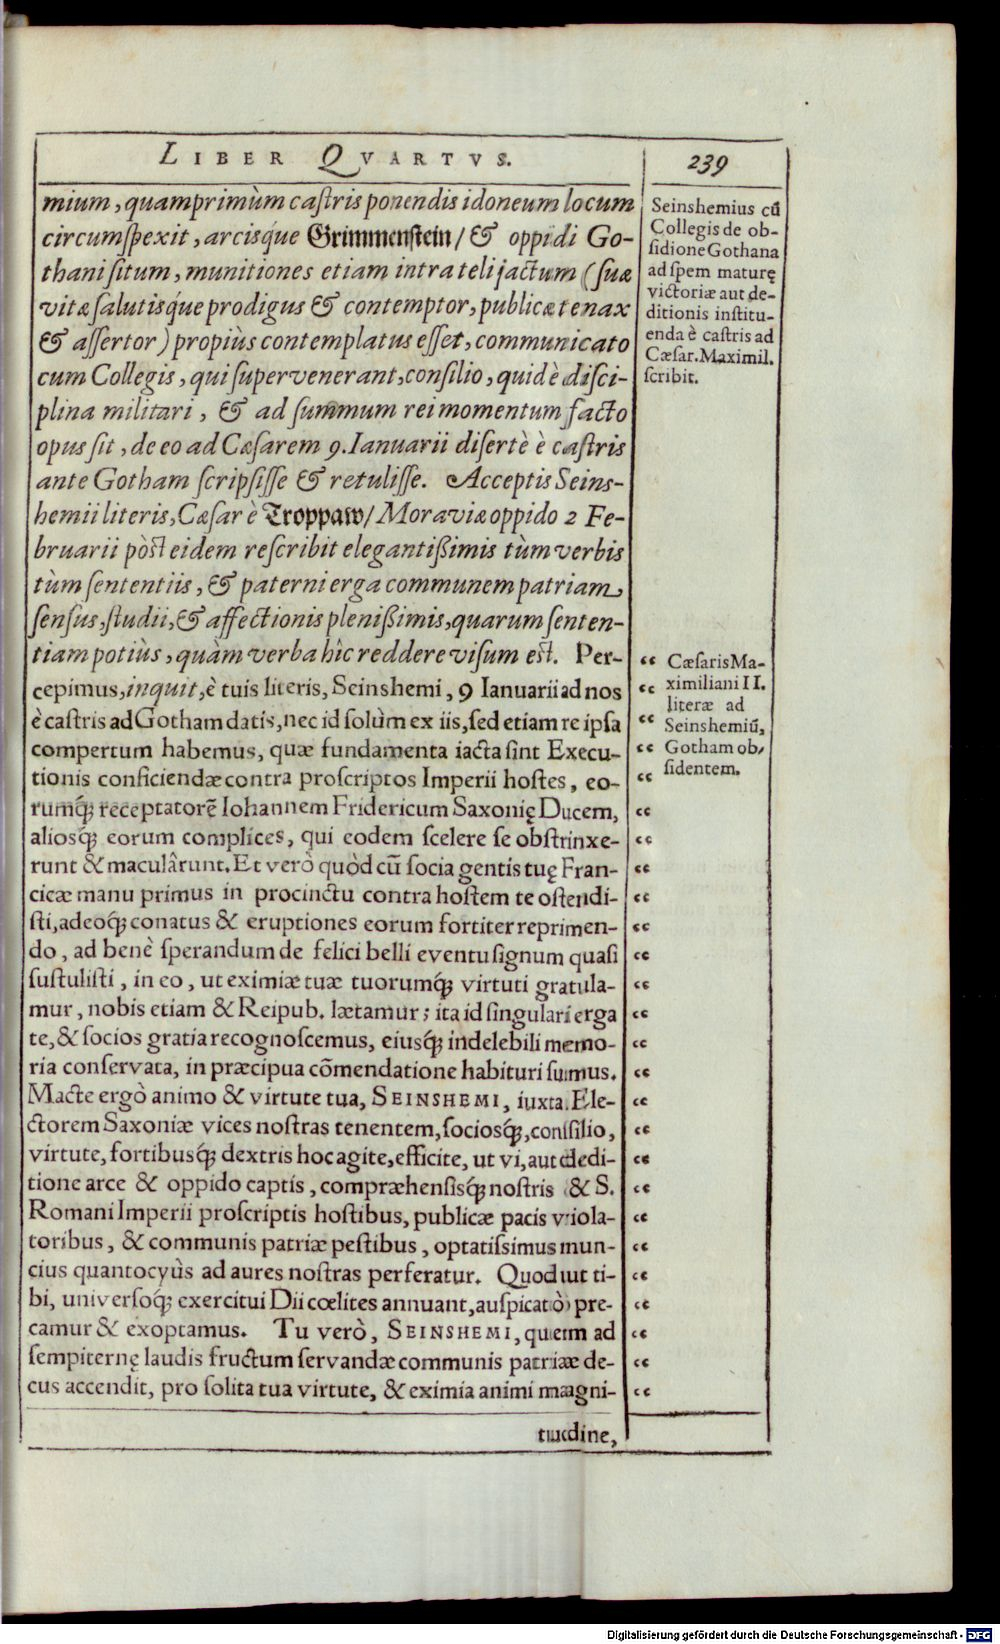 LIBER QVARTVS.
239
mium, quamprimùm castris ponendis idoneum locum
circumspexit, arcisq́ue Grimmenstein/ & oppidi Go-
thani situm, munitiones etiam intra teli jactum (suæ
vitæ salutisq́ue prodigus & contemptor, publicæ tenax
& assertor) propiùs contemplatus esset, communicato
cum Collegis, qui supervenerant, consilio, quid è disci-
plina militari, & ad summum rei momentum facto
opus sit, de eo ad Cæsarem 9. Ianuarii disertè è castris
ante Gotham scripsisse & retulisse. Acceptis Seins-
hemii literis, Cæsar è Troppaw/ Moraviæ oppido 2 Fe-
bruarii pòst eidem rescribit elegantißimis tùm verbis
tùm sententiis, & paterni erga communem patriam
sensus, studii, & affectionis plenißimis, quarum senten-
tiam potiùs, quàm verba hîc reddere visum est. Per-
cepimus, inquit, è tuis literis, Seinshemi, 9 Ianuarii ad nos
è castris ad Gotham datis, nec id solùm ex iis, sed etiam re ipsa
compertum habemus, quæ fundamenta iacta sint Execu-
tionis conficiendæ contra proscriptos Imperii hostes, eo-
rumq́; receptatorē Iohannem Fridericum Saxonię Ducem,
aliosq́; eorum complices, qui eodem scelere se obstrinxe-
runt & maculârunt. Et verò quòd cū socia gentis tuę Fran-
cicæ manu primus in procinctu contra hostem te ostendi-
sti, adeoq́; conatus & eruptiones eorum fortiter reprimen-
do, ad benè sperandum de felici belli eventu signum quasi
sustulisti, in eo, ut eximiæ tuæ tuorumq́; virtuti gratula-
mur, nobis etiam & Reipub. lætamur; ita id singulari erga
te, & socios gratia recognoscemus, eiusq́; indelebili memo-
ria conservata, in præcipua cōmendatione habituri sumus.
Macte ergò animo & virtute tua, SEINSHEMI, iuxta Ele-
ctorem Saxoniæ vices nostras tenentem, sociosq́;, consilio,
virtute, fortibusq́; dextris hoc agite, efficite, ut vi, aut dedi-
tione arce & oppido captis, compræhensisq́; nostris & S.
Romani Imperii proscriptis hostibus, publicæ pacis viola-
toribus, & communis patriæ pestibus, optatissimus mun-
cius quantocyùs ad aures nostras perferatur. Quod ut ti-
bi, universoq́; exercitui Dii cœlites annuant, auspicatò pre-
camur & exoptamus. Tu verò, SEINSHEMI, quem ad
sempiternę laudis fructum servandæ communis patriæ de-
cus accendit, pro solita tua virtute, & eximia animi magni-
tudine,
Seinshemius cū
Collegis de ob-
sidione Gothana
ad spem maturę
victoriæ aut de-
ditionis institu-
enda è castris ad
Cæsar. Maximil.
scribit.
Cæsaris Ma-
ximiliani II.
literæ ad
Seinshemiū,
Gotham ob-
sidentem.
Digitalisierung gefördert durch die Deutsche Forschungsgemeinschaft - DFG